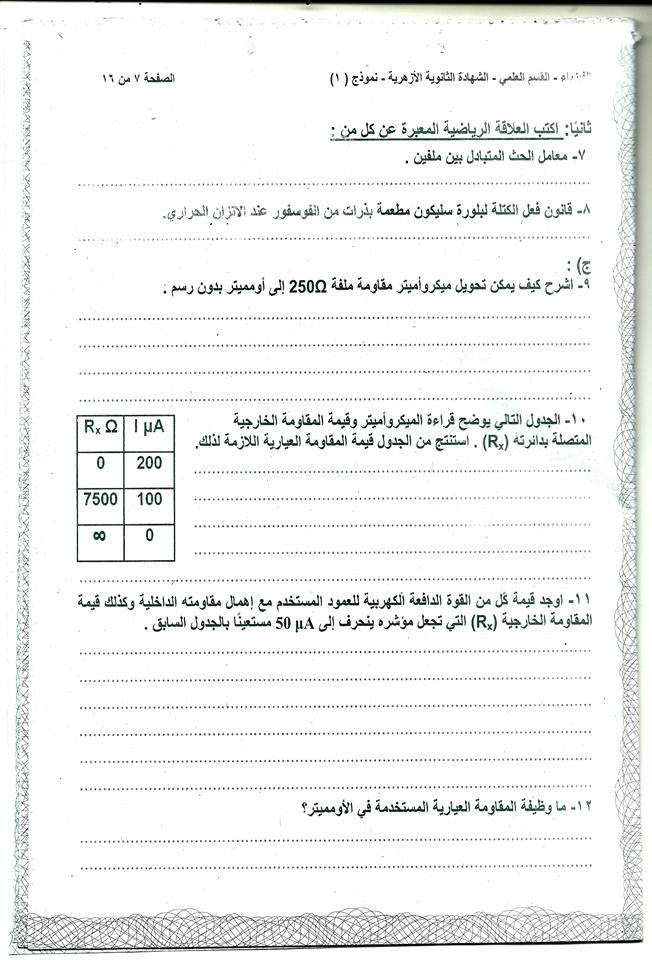 - القسم العلمي - الشهادة الثانوية الأزهرية - نموذج (١)
الصفحة ٧ من ١٦
ثانيًا: اكتب العلاقة الرياضية المعبرة عن كل من :
٧- معامل الحث المتبادل بين ملفين .
٨- قانون فعل الكتلة لبلورة سليكون مطعمة بذرات من الفوسفور عند الاتزان الحراري.
ج) :
٩- اشرح كيف يمكن تحويل ميكروأميتر مقاومة ملفة 250Ω إلى أومميتر بدون رسم .
١٠- الجدول التالي يوضح قراءة الميكروأميتر وقيمة المقاومة الخارجية
المتصلة بدائرته (Rx) . استنتج من الجدول قيمة المقاومة العيارية اللازمة لذلك.
Rx Ω I µA
0 200
7500 100
∞ 0
١١- اوجد قيمة كل من القوة الدافعة الكهربية للعمود المستخدم مع إهمال مقاومته الداخلية وكذلك قيمة
المقاومة الخارجية (Rx) التي تجعل مؤشره ينحرف إلى 50 µA مستعينًا بالجدول السابق .
١٢- ما وظيفة المقاومة العيارية المستخدمة في الأومميتر؟